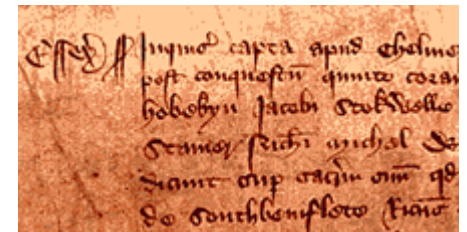 Essex Inquis' capta apud Chelmes
post conquestu' quinto coram
hobekyn Jacobi Stokwelle
Stamer Ric'hi michel de
dicunt sup' sacr'm om' qd
de Southbemflete Ric'us